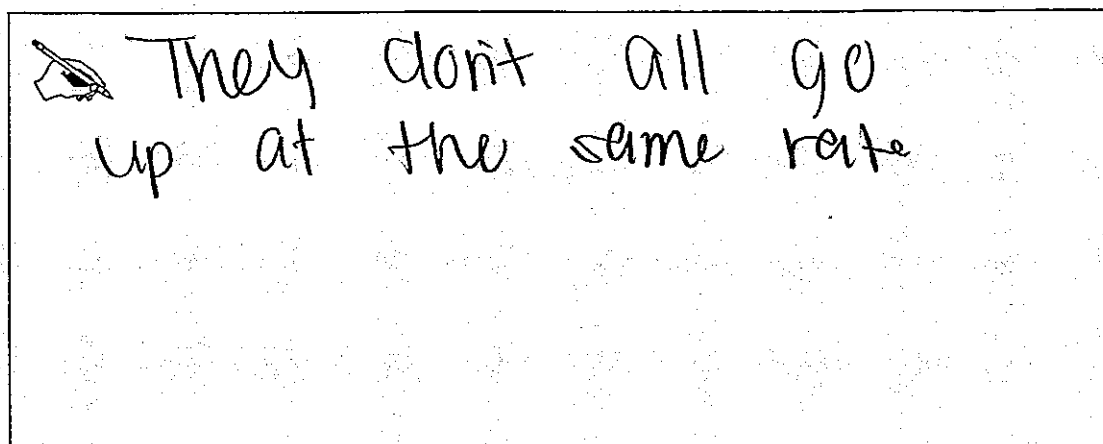 They don't all go
up at the same rate